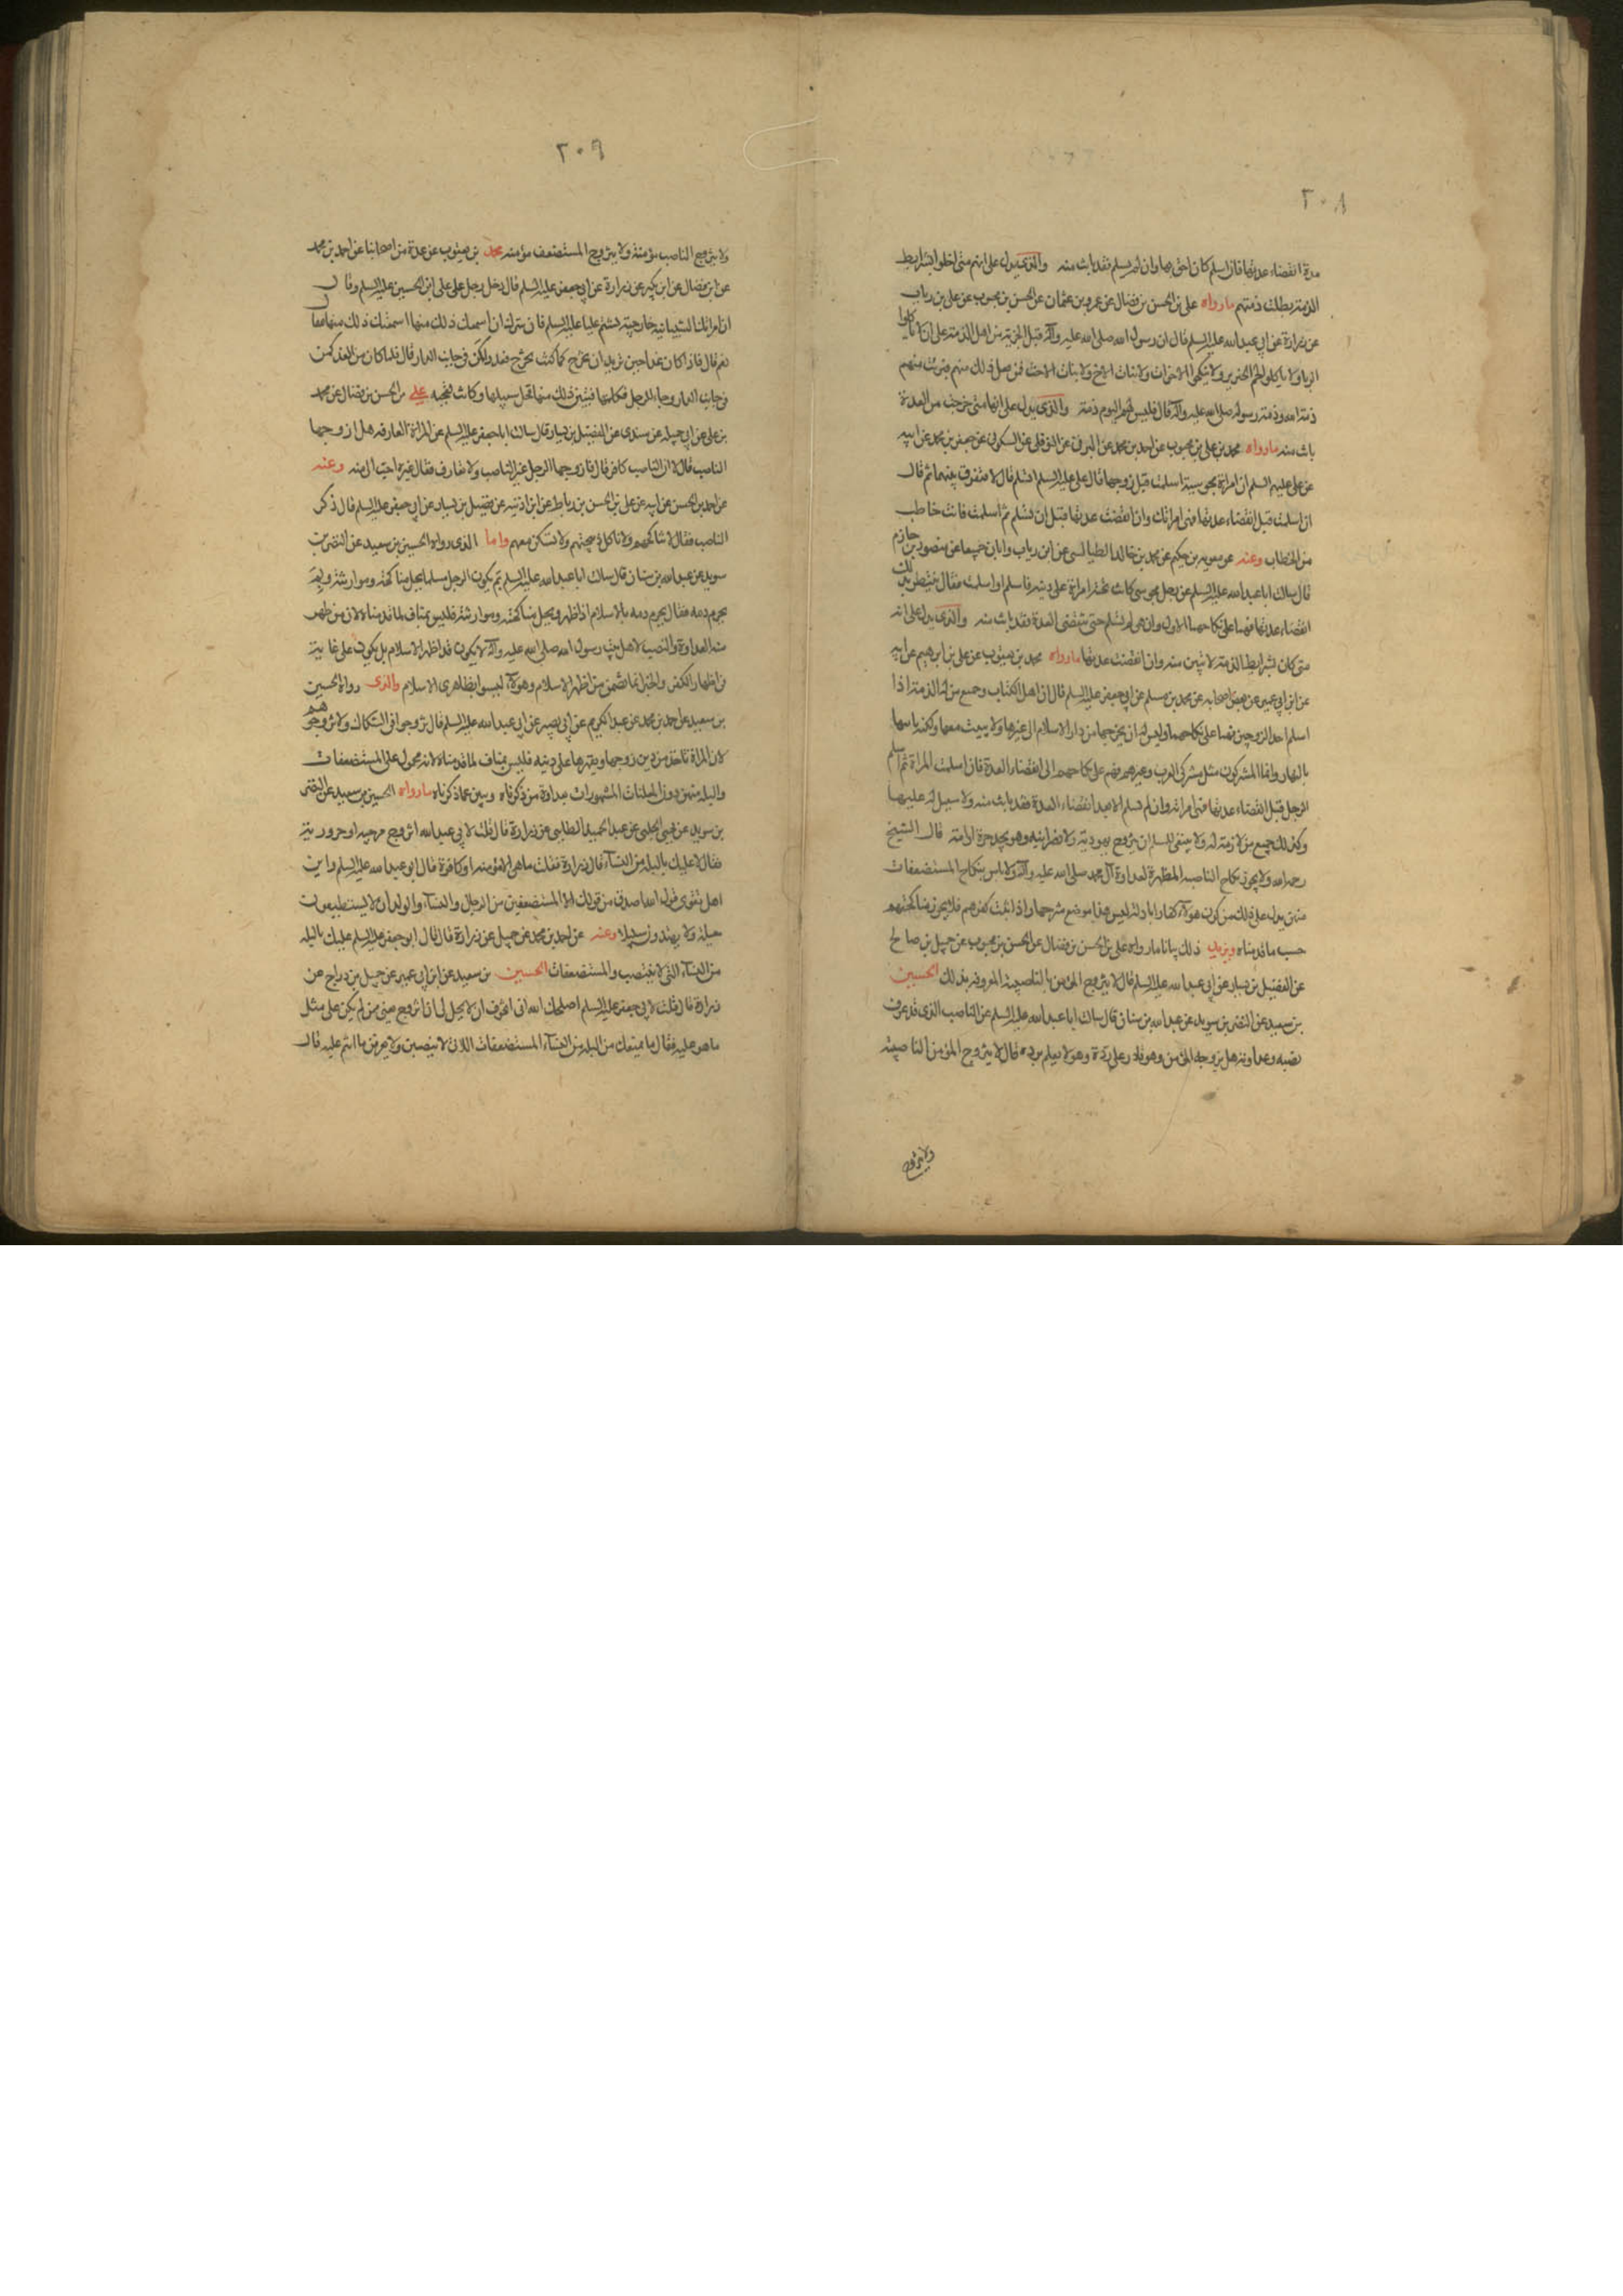 ٢٠٨
مدة انقضاء عدتها فان اسلم كان احق بها وان لم يسلم فقد بانت منه والذي يدل على انهم متى اخلوا بشرايط
الذمة بطلت ذمتهم ما رواه علي بن الحسن بن فضال عن عمرو بن عثمان عن الحسن بن محبوب عن علي بن رياب
عن زرارة عن ابي عبد الله عليه السلم قال ان رسول الله صلى الله عليه وآله قبل الجزية من اهل الذمة على ان لا ياكلوا
الربا ولا ياكلوا لحم الخنزير ولا ينكحوا الاخوات ولا بنات الاخ ولا بنات الاخت فمن فعل ذلك منهم برئت منهم
ذمة الله وذمة رسوله صلى الله عليه وآله قال فليس لهم اليوم ذمة والذي يدل على انها متى خرجت من العدة
بانت منه ما رواه محمد بن علي بن محبوب عن احمد بن محمد عن البرقي عن النوفلي عن السكوني عن جعفر بن محمد عن ابيه
عن علي عليهم السلم ان امراة مجوسية اسلمت قبل زوجها قال علي عليه السلم اتسلم قال لا ففرق بينهما ثم قال
ان اسلمت قبل انقضاء عدتها فهي امراتك وان انقضت عدتها قبل ان تسلم ثم اسلمت فانت خاطب
من الخطاب وعنه عن معوية بن حكيم عن محمد بن خالد الطيالسي عن ابن رياب وابان جميعا عن منصور بن حازم
قال سالت ابا عبد الله عليه السلم عن رجل مجوسي كانت تحته امراة على دينه فاسلم او اسلمت فقال ينتظر بذلك
انقضاء عدتها فهما على نكاحهما الاول وان هي لم تسلم حتى تنقضي العدة فقد بانت منه والذي يدل على انه
متى كان بشرايط الذمة لا تبين منه وان انقضت عدتها ما رواه محمد بن يعقوب عن علي بن ابرهيم عن ابيه
عن ابن ابي عمير عن بعض اصحابه عن محمد بن مسلم عن ابي جعفر عليه السلم قال ان اهل الكتاب وجميع من له الذمة اذا
اسلم احد الزوجين فهما على نكاحهما وليس له ان يخرجها من دار الاسلام الى غيرها ولا يبيت معها ولكنه ياتيها
بالنهار واما المشركون مثل مشركي العرب وغيرهم فهم على نكاحهم الى انقضاء العدة فان اسلمت المراة ثم اسلم
الرجل قبل انقضاء عدتها فهي امراته وان لم يسلم الا بعد انقضاء العدة فقد بانت منه ولا سبيل له عليها
وكذلك جميع من لا ذمة له ولا ينبغي للمسلم ان يتزوج يهودية ولا نصرانية وهو يجد حرة او امة قال الشيخ
رحمه الله ولا يجوز نكاح الناصبة المظهرة لعداوة آل محمد صلى الله عليه وآله ولا باس بنكاح المستضعفات
منهن يدل على ذلك من كون هؤلاء كفارا بادلة ليس هذا موضع شرحها واذا ثبت كفرهم فلا يجوز مناكحتهم
حسب ما قدمناه ويزيد ذلك بيانا ما رواه علي بن الحسن بن فضال عن الحسن بن محبوب عن جميل بن صالح
عن الفضيل بن يسار عن ابي عبد الله عليه السلم قال لا يتزوج المؤمن بالناصبية المعروفة بذلك الحسين
بن سعيد عن النضر بن سويد عن عبد الله بن سنان قال سالت ابا عبد الله عليه السلم عن الناصب الذي قد عرف
نصبه وعداوته هل يزوجه المؤمن وهو قادر على رده وهو لا يعلم برده قال لا يتزوج المؤمن الناصبية
ولا يتزوج
٢٠٩
ولا يتزوج الناصب مؤمنة ولا يتزوج المستضعف مؤمنة محمد بن يعقوب عن عدة من اصحابنا عن احمد بن محمد
عن ابن فضال عن ابن بكير عن زرارة عن ابي جعفر عليه السلم قال دخل رجل على علي بن الحسين عليه السلم وقال
ان امراتك الشيبانية خارجية تشتم عليا عليه السلم فان سرك ان اسمعك ذلك منها اسمعتك ذلك منها فقال
نعم قال فاذا كان غدا حين تريد ان تخرج كما كنت تخرج فعد واكمن في جانب الدار قال فلما كان من الغد كمن
في جانب الدار وجاء الرجل فكلمها فتبين ذلك منها فخلى سبيلها وكانت تعجبه علي بن الحسن بن فضال عن محمد
بن علي عن ابي جميلة عن سندي عن الفضيل بن يسار قال سالت ابا جعفر عليه السلم عن المراة العارفة هل ازوجها
الناصب قال لا ان الناصب كافر قال فازوجها الرجل غير الناصب ولا عارف فقال غيره احب الي منه وعنه
عن احمد بن الحسن عن ابيه عن علي بن الحسن بن رباط عن ابن اذينه عن فضيل بن يسار عن ابي جعفر عليه السلم قال ذكر
الناصب فقال لا تناكحهم ولا تاكل ذبيحتهم ولا تسكن معهم واما الذي رواه الحسين بن سعيد عن النضر بن
سويد عن عبد الله بن سنان قال سالت ابا عبد الله عليه السلم بم يكون الرجل مسلما يحل مناكحته وموارثته وبم
يحرم دمه فقال يحرم دمه بالاسلام اذا ظهر ويحل مناكحته وموارثته فليس بمناف لما قدمناه لان من ظهر
منه العداوة والنصب لاهل بيت رسول الله صلى الله عليه وآله لا يكون قد اظهر الاسلام بل يكون على غاية
من اظهار الكفر والخبر انما تضمن من اظهر الاسلام وهؤلاء ليسوا بظاهري الاسلام والذي رواه الحسين
بن سعيد عن احمد بن محمد عن عبد الكريم عن ابي بصير عن ابي عبد الله عليه السلم قال تزوجوا في الشكاك ولا تزوجوهم
لان المراة تاخذ من دين زوجها ويقهرها على دينه فليس بمناف لما قدمناه لانه محمول على المستضعفات
والبله منهن دون المعلنات المشهورات بعداوة من ذكرناه ويبين عما ذكرناه ما رواه الحسين بن سعيد عن النضر
بن سويد عن يحيى الحلبي عن عبد الحميد الطائي عن زرارة قال قلت لابي عبد الله اتزوج مرجية او حرورية
فقال لا عليك بالبله من النساء قال زرارة فقلت ما هي الا مؤمنة او كافرة فقال ابو عبد الله عليه السلم واين
اهل ثنوى قول الله اصدق من قولك الا المستضعفين من الرجال والنساء والولدان لا يستطيعون
حيلة ولا يهتدون سبيلا وعنه عن احمد بن محمد عن جميل عن زرارة قال قال ابو جعفر عليه السلم عليك بالبله
من النساء التي لا تنصب والمستضعفات الحسين بن سعيد عن ابن ابي عمير عن جميل بن دراج عن
زرارة قال قلت لابي جعفر عليه السلم اصلحك الله اني اخوف ان لا يحل لي ان اتزوج يعني ممن لم يكن على مثل
ما هو عليه فقال ما يمنعك من البله من النساء المستضعفات اللاتي لا ينصبن ولا يعرفن ما انتم عليه قال